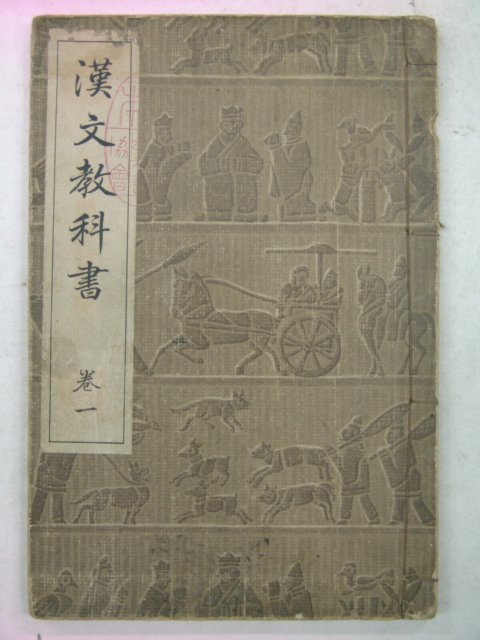 漢文教科書
卷一